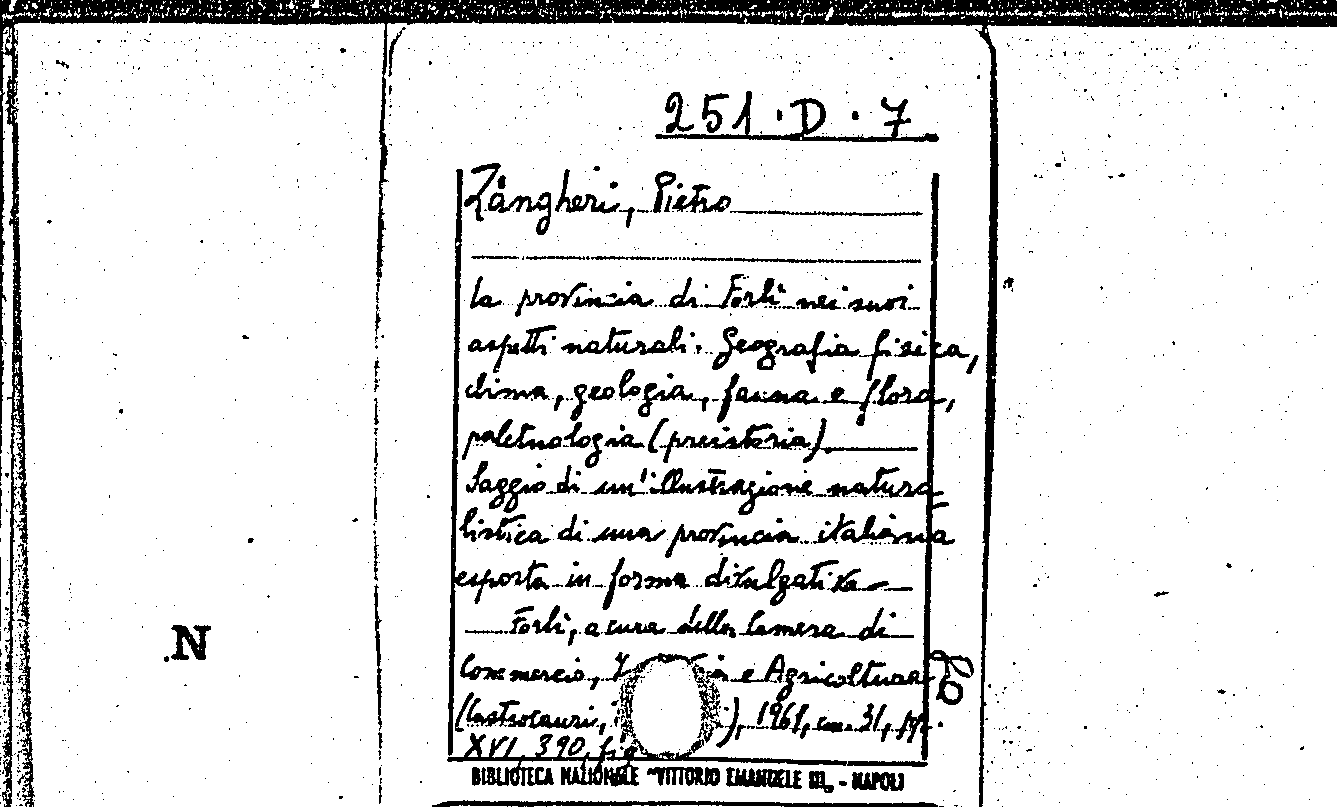 251.D.7
Zangheri, Pietro
La provincia di Forlì nei suoi
aspetti naturali. Geografia fisica,
clima, geologia, fauna e flora,
paletnologia (preistoria).
Saggio di un'illustrazione natura=
listica di una provincia italiana
esposta in forma divulgativa
Forlì, a cura della Camera di
Commercio, e Agricoltura
(Castrocaro, ), 1961, cm. 31, pp.
XVI, 390, fig
N
BIBLIOTECA NAZIONALE "VITTORIO EMANUELE III„ - NAPOLI